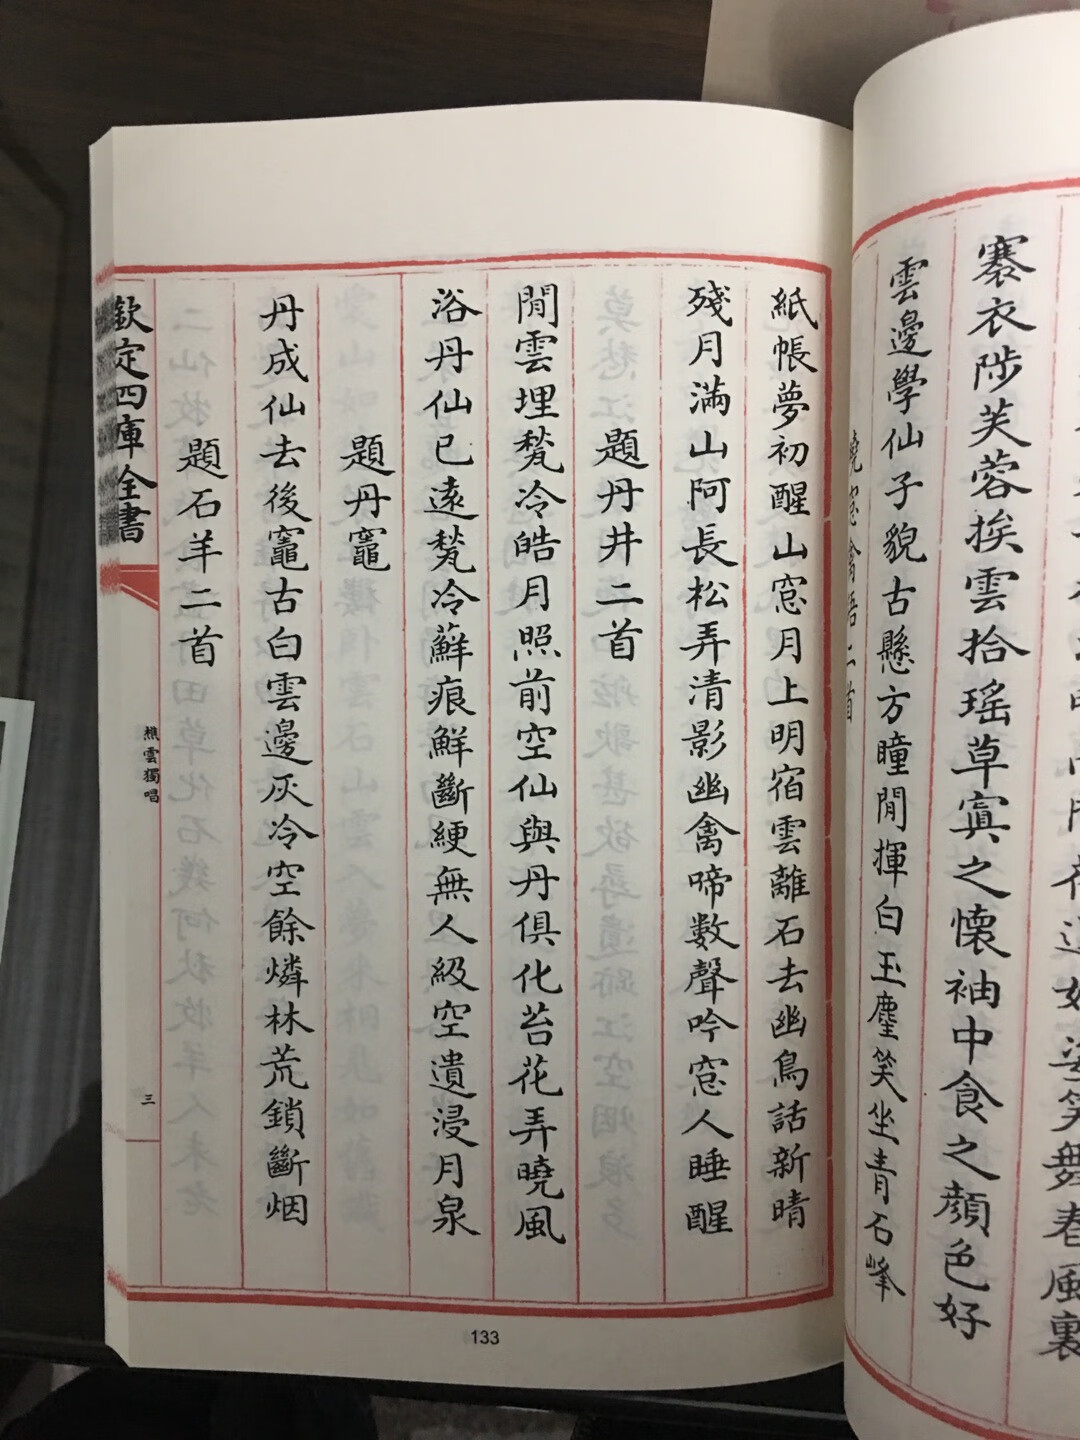 褰衣陟芙蓉挨雲拾瑤草寘之懷袖中食之顔色好
雲邊學仙子貌古懸方瞳閒揮白玉麈笑坐青石峰
曉窓禽語二首
紙帳夢初醒山窓月上明宿雲離石去幽鳥話新晴
殘月滿山阿長松弄清影幽禽啼數聲吟窓人睡醒
題丹井二首
閒雲埋甃冷皓月照前空仙與丹俱化苔花弄曉風
浴丹仙已遠甃冷蘚痕鮮斷綆無人級空遺浸月泉
題丹竈
丹成仙去後竈古白雲邊灰冷空餘燐林荒鎖斷烟
題石羊二首
欽定四庫全書
樵雲獨唱
三
133